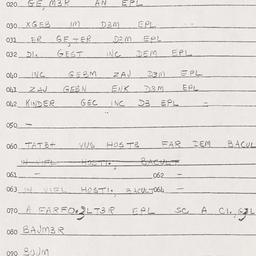 020. GE, M3R AN EPL
030 XGEB IM D3M EPL
031 ER GE,-ER D2M EPL
032 DI. GEST INC DEM EPL
040 INC GEBM ZAV D3M EPL
041 ZAV GEBN ENK D3M EPL
042 KINDER GEC INC D3 EPL -
050 -
060 TATB+ VUG HOSTB FAR DEM BACUL
IN VIEL HOSTI,
061 - 062 -
063 IN VIEL HOSTI, 064 -
070 A FARFO,3LT3IR EPL SC A CI.,G3L
080 BAJM3R
090 BOJM